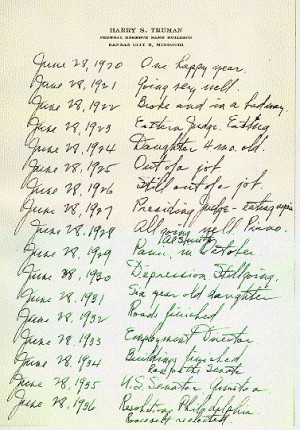 HARRY S. TRUMAN
FEDERAL RESERVE BANK BUILDING
KANSAS CITY 6, MISSOURI
June 28, 1920 One happy year.
June 28, 1921 Going very well.
June 28, 1922 Broke and in a bad way.
June 28, 1923 Eastern Judge. Eating
June 28, 1924 Daughter 4 mo. old.
June 28, 1925 Out of a job
June 28, 1926 Still out of a job.
June 28, 1927 Presiding Judge - eating again
June 28, 1928 All going well Piano.
Al Smith
June 28, 1929 Panic, in October
June 28, 1930 Depression. Still going.
June 28, 1931 Six year old daughter
June 28, 1932 Roads finished
June 28, 1933 Employment Director
June 28, 1934 Buildings finished
Ran for the Senate
June 28, 1935 U.S. Senator
June 28, 1936 Resolutions Philadelphia
Roosevelt reelected